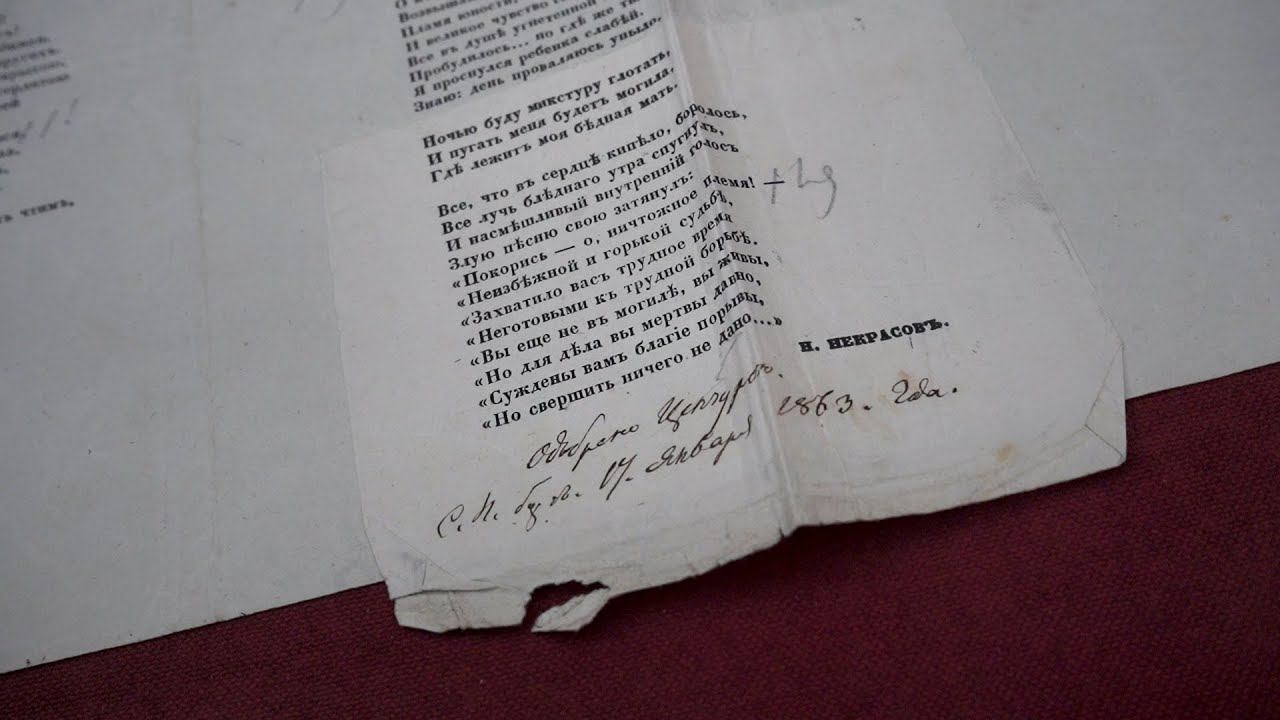 О
Возвыш
Пламя юности,
И великое чувство
Все въ душѣ угнетенной
Пробудилось... но гдѣ же
Я проснулся ребенка слабѣй.
Знаю: день проваляюсь уныло,
Ночью буду микстуру глотать,
И пугать меня будетъ могила,
Гдѣ лежитъ моя бѣдная мать.
Все, что въ сердцѣ кипѣло, боролось,
Все лучъ блѣднаго утра спугнулъ,
И насмѣшливый внутренній голосъ
Злую пѣсню свою затянулъ:
«Покорись — о, ничтожное племя! —
«Неизбѣжной и горькой судьбѣ,
«Захватило васъ трудное время
«Неготовыми къ трудной борьбѣ.
«Вы еще не въ могилѣ, вы живы,
«Но для дѣла вы мертвы давно,
«Суждены вамъ благіе порывы,
«Но свершить ничего не дано...»
Н. НЕКРАСОВЪ.
Одобрено Цензурою.
С. П. бургъ. 17. Января 1863. Года.
ъ чтимъ,